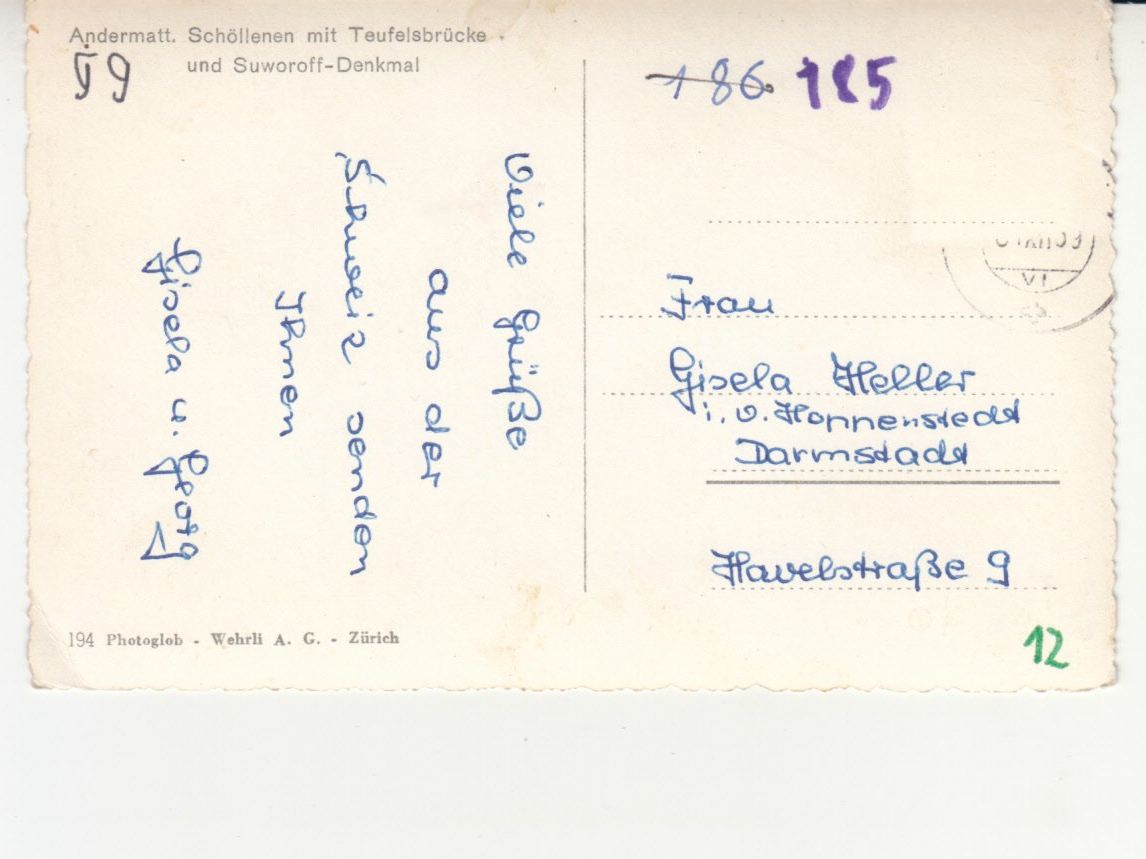 Andermatt. Schöllenen mit Teufelsbrücke
und Suworoff-Denkmal
59
186 185
Viele Grüße
aus der
Schweiz senden
Ihnen
Gisela u. Georg
Frau
Gisela Heller
i. v. Honnenstedt
Darmstadt
Havelstraße 9
194 Photoglob - Wehrli A. G. - Zürich
12